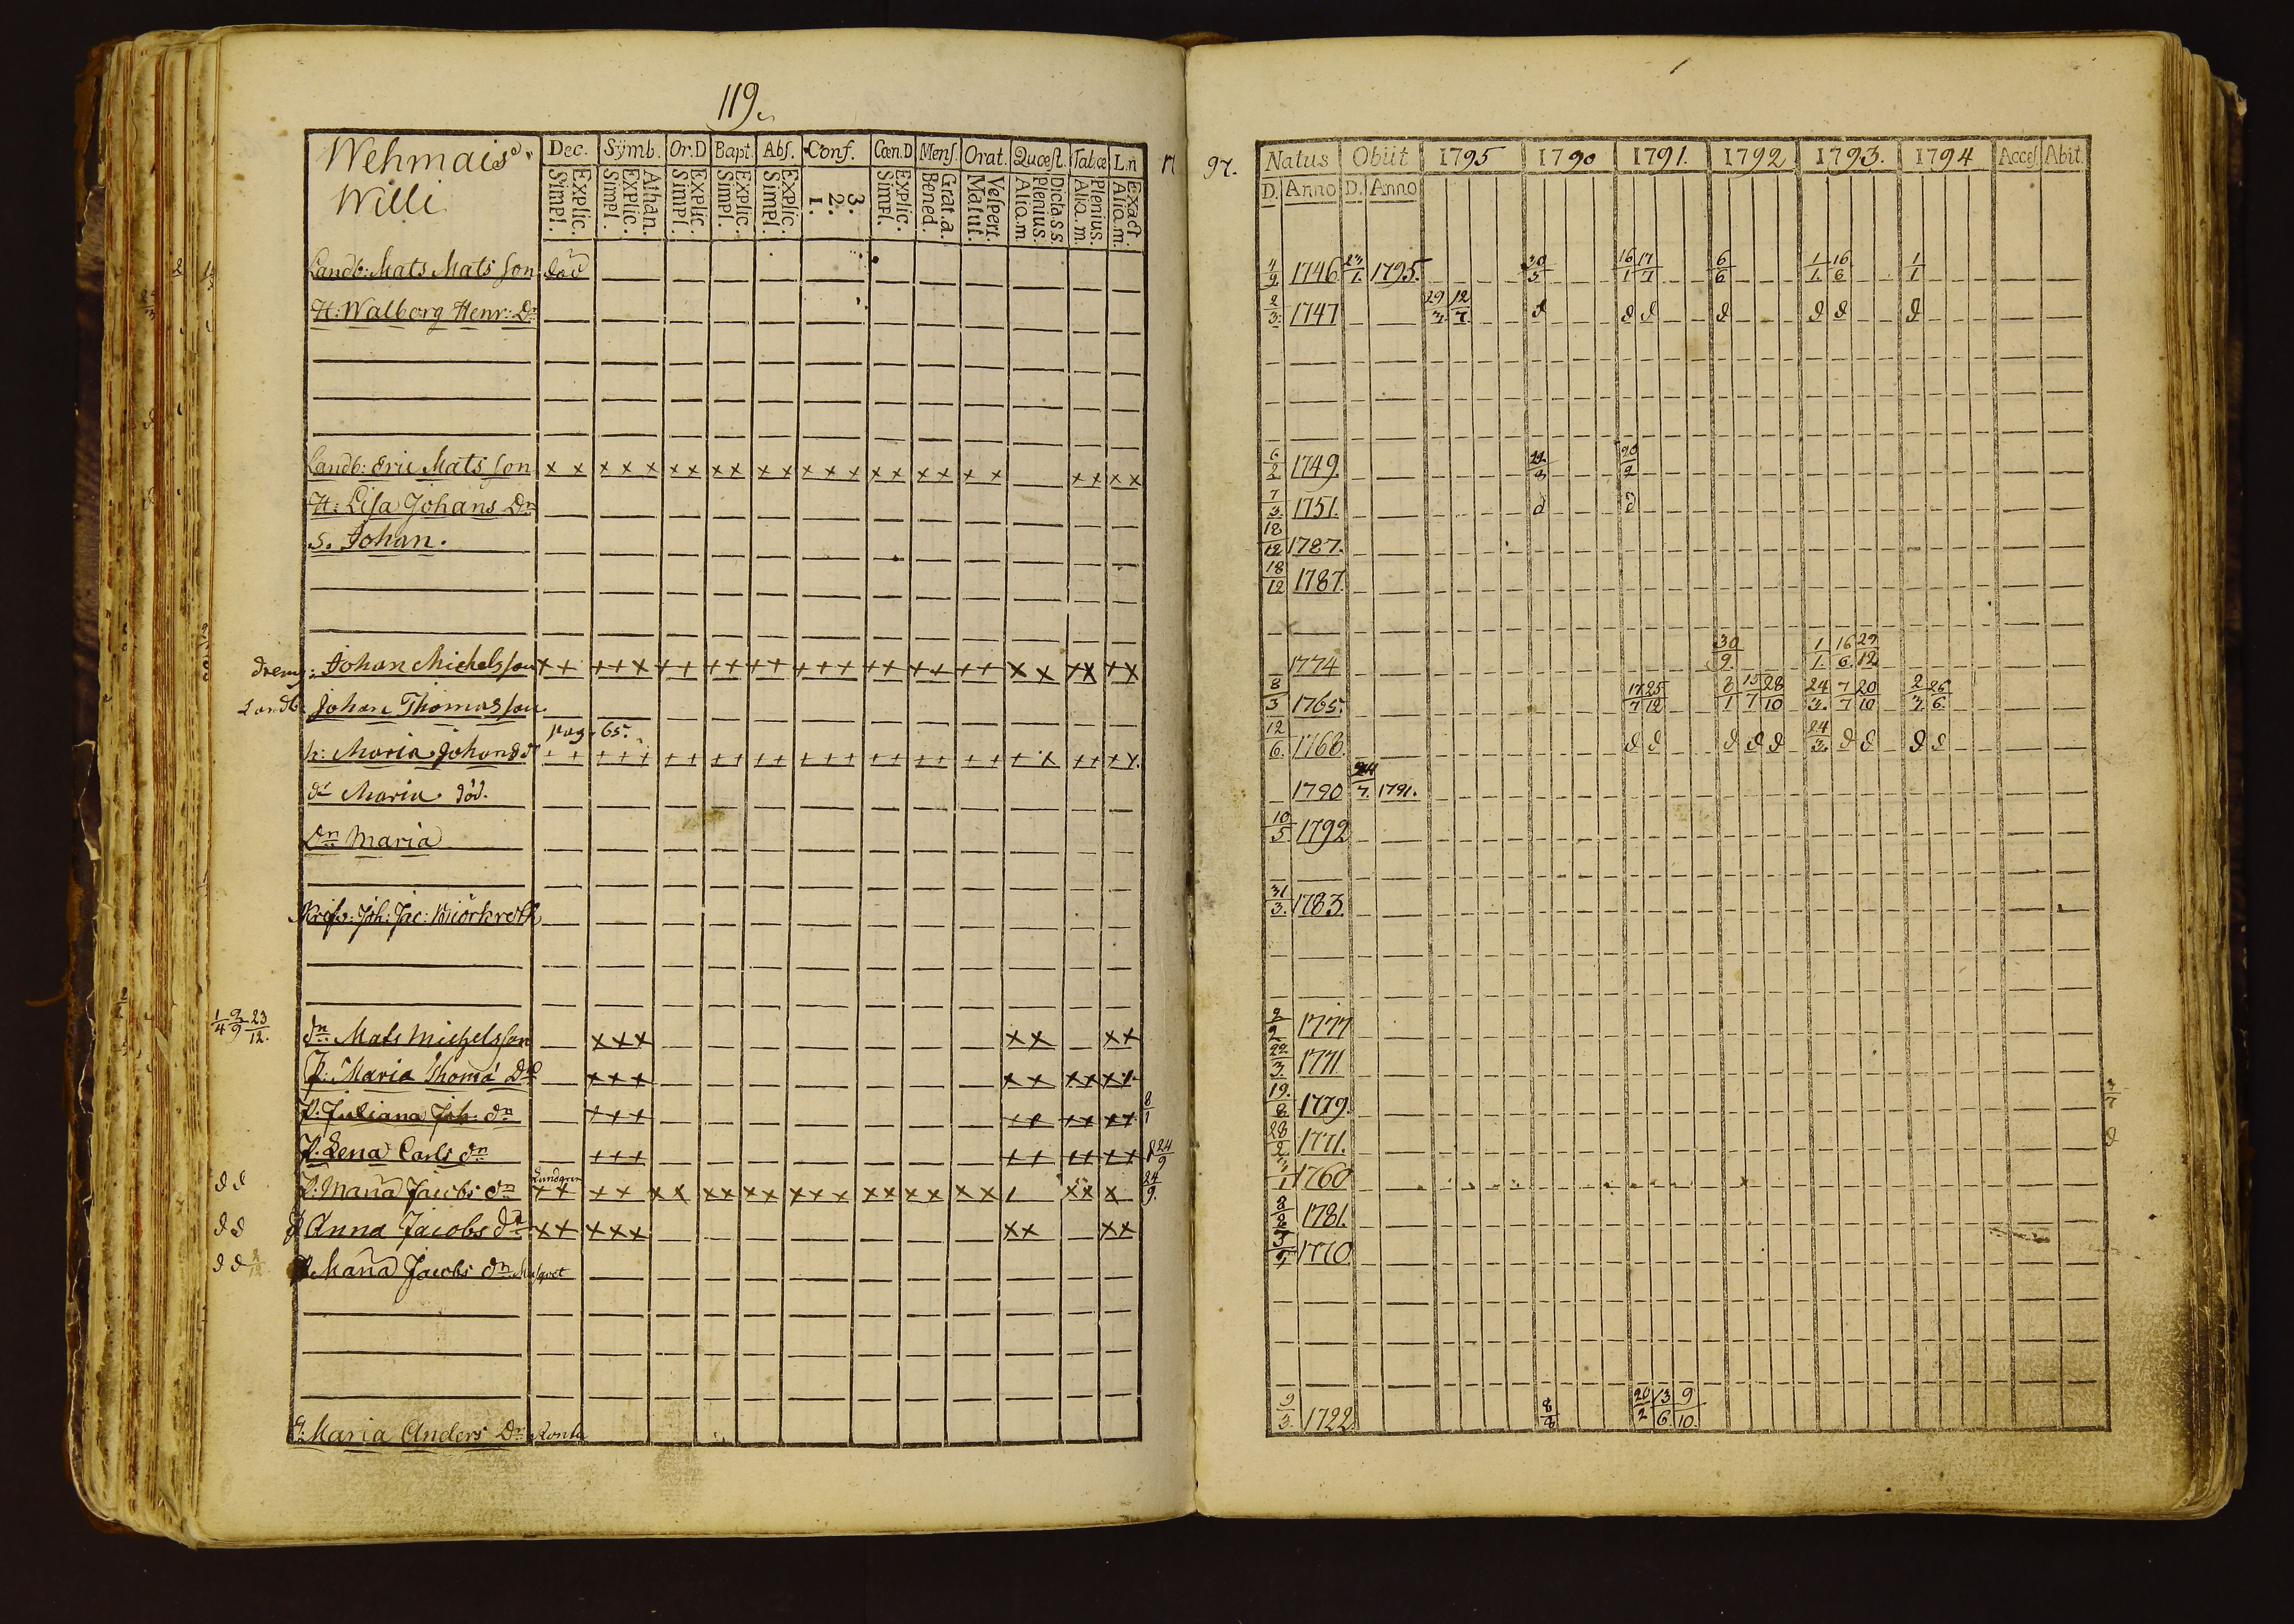 119.
Wehmais
Willi
Dec. Symb. Or.D Bapt. Abs. Conf. Cœn.D Mens. Orat. Quœst. Tab.œ L.n
Explic. Simpl. Athan. Explic. Simpl. Explic. Simpl. Explic. Simpl. Explic. Simpl. 3. 2. 1. Explic. Simpl. Grat.a. Bened. Vespert. Matut. Dicta S.S. Plenius. Aliq.m Plenius. Aliq.m. Exact. Aliq.m.
Landb: Mats Mats son död
H: Walborg Henr: Dr
Landb: Eric Mats son x x x x x x x x x x x x x x x x x x x x x x x x
H: Lisa Johans Dr
S. Johan.
dreng: Johan Michelsson
Landb: Johan Thomasson
pag. 65.
h: Maria Johans dr
dr Maria död.
Dn Maria
Joh: Jac: Biörkroth
1/4 2/9 23/12.
dn Mats Michelsson xxx xx xx
P: Maria Thoma Dr xxx xx xx xx
P. Juliana Joh: dn +++ 8/1
P. Lena Carls dn +++ ++ ++ ++ 24/9
d d P: Maria Jacobs dn Lundgren 24/9.
d d P Anna Jacobs dr xx xxx xx xx
d d P Maria Jacobs dn
E: Maria Anders Dr
97.
Natus Obiit 1795 1790 1791. 1792 1793. 1794 Acces. Abit.
D. Anno D. Anno
4/9 1746 23/1. 1795. 30/5 16/1 17/7 6/6 1/1. 16/6 1/1
2/3. 1747 29/3. 12/7 d d d d d d d
6/2 1749. 22/8 20/2
7/3. 1751. d d
18/12 1787.
18/12 1787.
1774 30/9. 1/1. 16/6. 29/12
8/5 1765. 17/7 25/12 8/1 15/7 28/10 24/3. 7/7 20/10 2/3. 26/6.
12/6. 1768. d d d d d 24/3. d d d d
1790 24/7. 1791.
10/5 1792
31/3. 1783.
2/2 1777
22/3. 1771
19./8. 1779. 3/7
28/2. 1771. d
1760
8/2 1781.
1770
9/3. 1722. 8/8 20/2 13/6. 9/10.